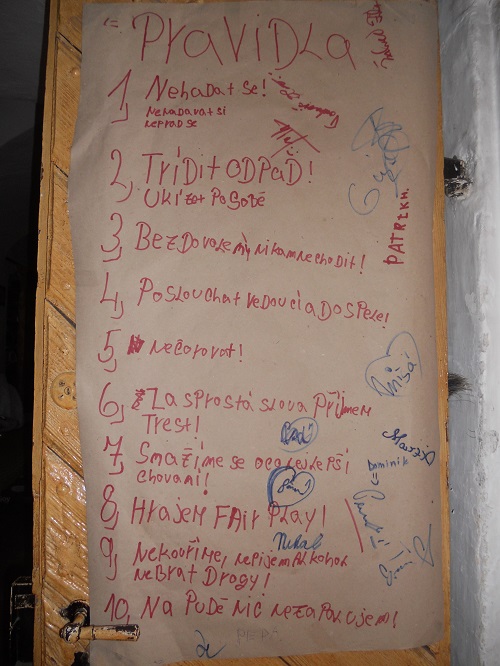 PRAVIDLA
1, Nehadat se!
Nenadavat si
neprad se
2, TRIDit ODPAD!
UKlízet PO SOBĚ
3, BEZ Dovolený nikam nechodit!
4, Poslouchat vedoucí a DOSPELE!
5, nečarovat!
6, Za sprostá slova příjmem
Trest!
7, Smažíme se o co nejlepší
chovaní!
8, Hrajem FAIr PLAY!
9, Nekouříme, nepijem Alkohol
neBrat Drogy!
10, NA PůDě Nic nezapalujem!
PATRIK H.
Míša
Dominik
PEPA